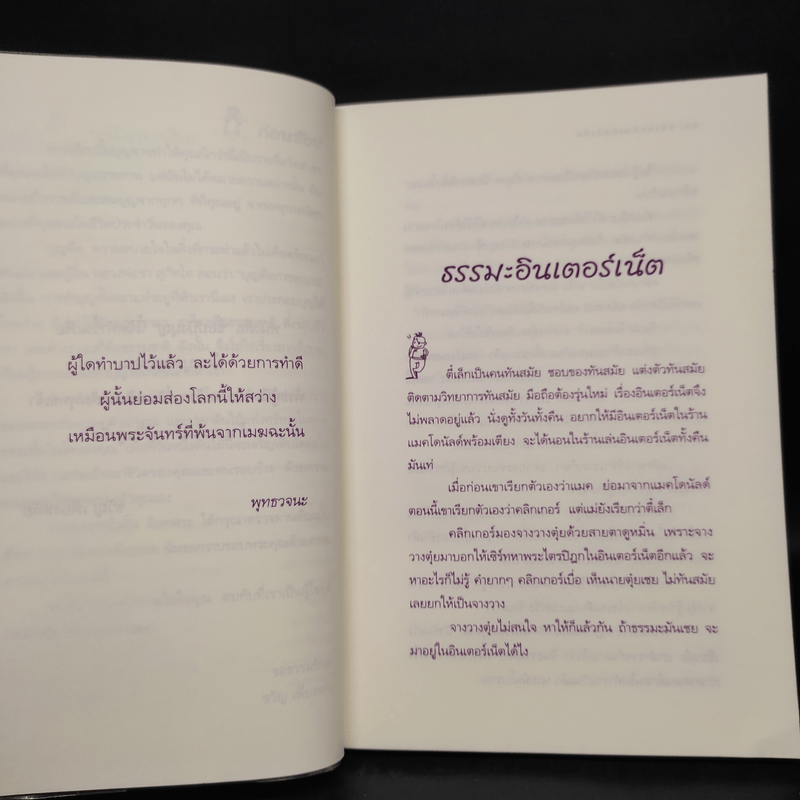 ผู้ใดทำบาปไว้แล้ว ละได้ด้วยการทำดี
ผู้นั้นย่อมส่องโลกนี้ให้สว่าง
เหมือนพระจันทร์ที่พ้นจากเมฆฉะนั้น
พุทธวจนะ
ธรรมะอินเตอร์เน็ต
ตี๋เล็กเป็นคนทันสมัย ชอบของทันสมัย แต่งตัวทันสมัย
ติดตามวิทยาการทันสมัย มือถือต้องรุ่นใหม่ เรื่องอินเตอร์เน็ตจึง
ไม่พลาดอยู่แล้ว นั่งดูทั้งวันทั้งคืน อยากให้มีอินเตอร์เน็ตในร้าน
แมคโดนัลด์พร้อมเตียง จะได้นอนในร้านเล่นอินเตอร์เน็ตทั้งคืน
มันเท่
เมื่อก่อนเขาเรียกตัวเองว่าแมค ย่อมาจากแมคโดนัลด์
ตอนนี้เขาเรียกตัวเองว่าคลิกเกอร์ แต่แม่ยังเรียกว่าตี๋เล็ก
คลิกเกอร์มองจางวางตุ๋ยด้วยสายตาดูหมิ่น เพราะจาง
วางตุ๋ยมาบอกให้เซิร์ทหาพระไตรปิฎกในอินเตอร์เน็ตอีกแล้ว จะ
หาอะไรก็ไม่รู้ คำยากๆ คลิกเกอร์เบื่อ เห็นนายตุ๋ยเชย ไม่ทันสมัย
เลยยกให้เป็นจางวาง
จางวางตุ๋ยไม่สนใจ หาให้ก็แล้วกัน ถ้าธรรมะมันเชย จะ
มาอยู่ในอินเตอร์เน็ตได้ไง